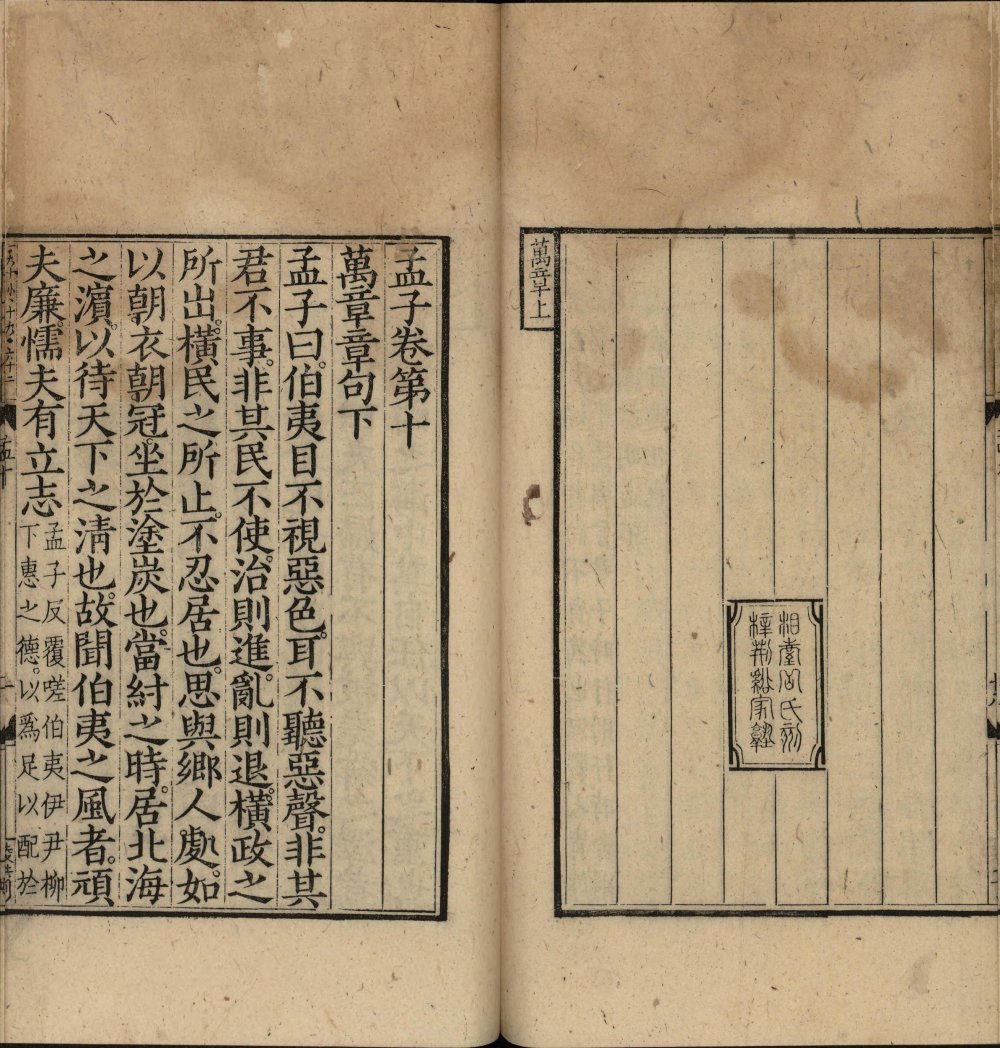 萬章上
相臺岳氏刻
梓荆谿家塾
孟子卷第十
萬章章句下
孟子曰。伯夷目不視惡色。耳不聽惡聲。非其
君不事。非其民不使。治則進。亂則退。橫政之
所出。橫民之所止。不忍居也。思與鄉人處。如
以朝衣朝冠。坐於塗炭也。當紂之時。居北海
之濱。以待天下之淸也。故聞伯夷之風者。頑
夫廉。懦夫有立志
孟子反覆嗟伯夷伊尹柳
下惠之德。以爲足以配於
孟十
一